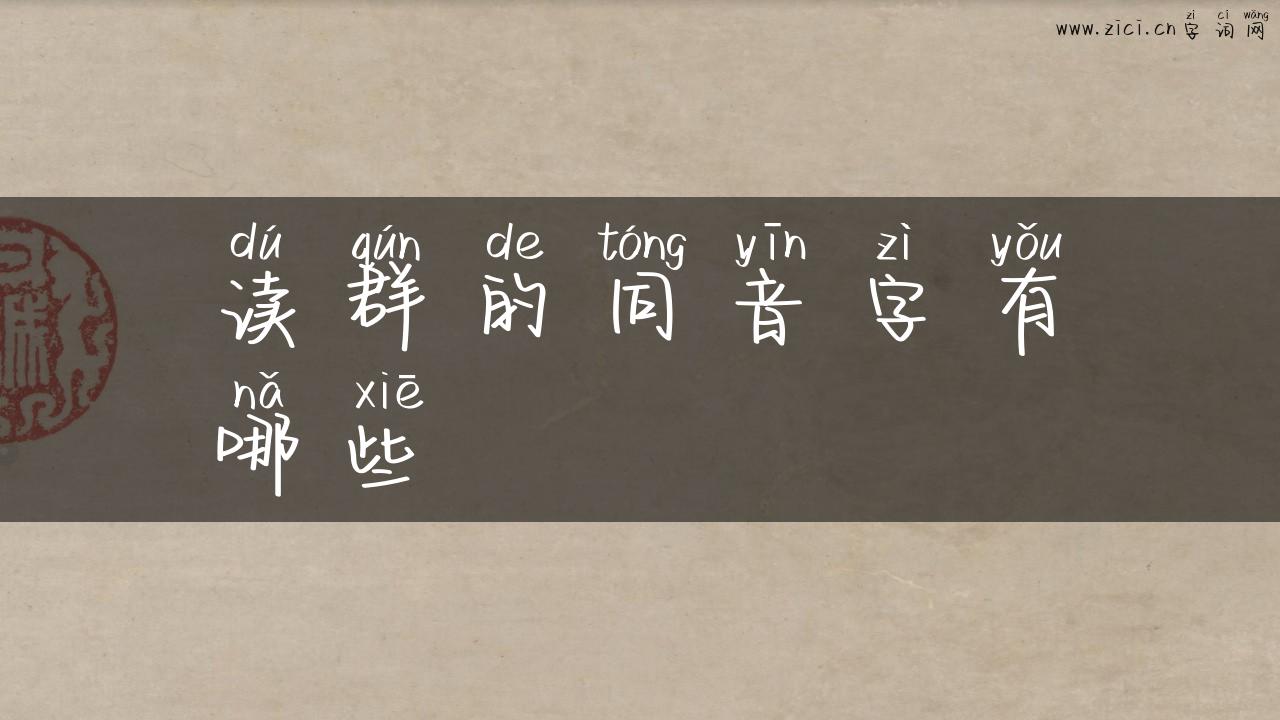 zì cí wǎng
www.zici.cn 字词网
dú qún de tóng yīn zì yǒu
读群的同音字有
nǎ xiē
哪些